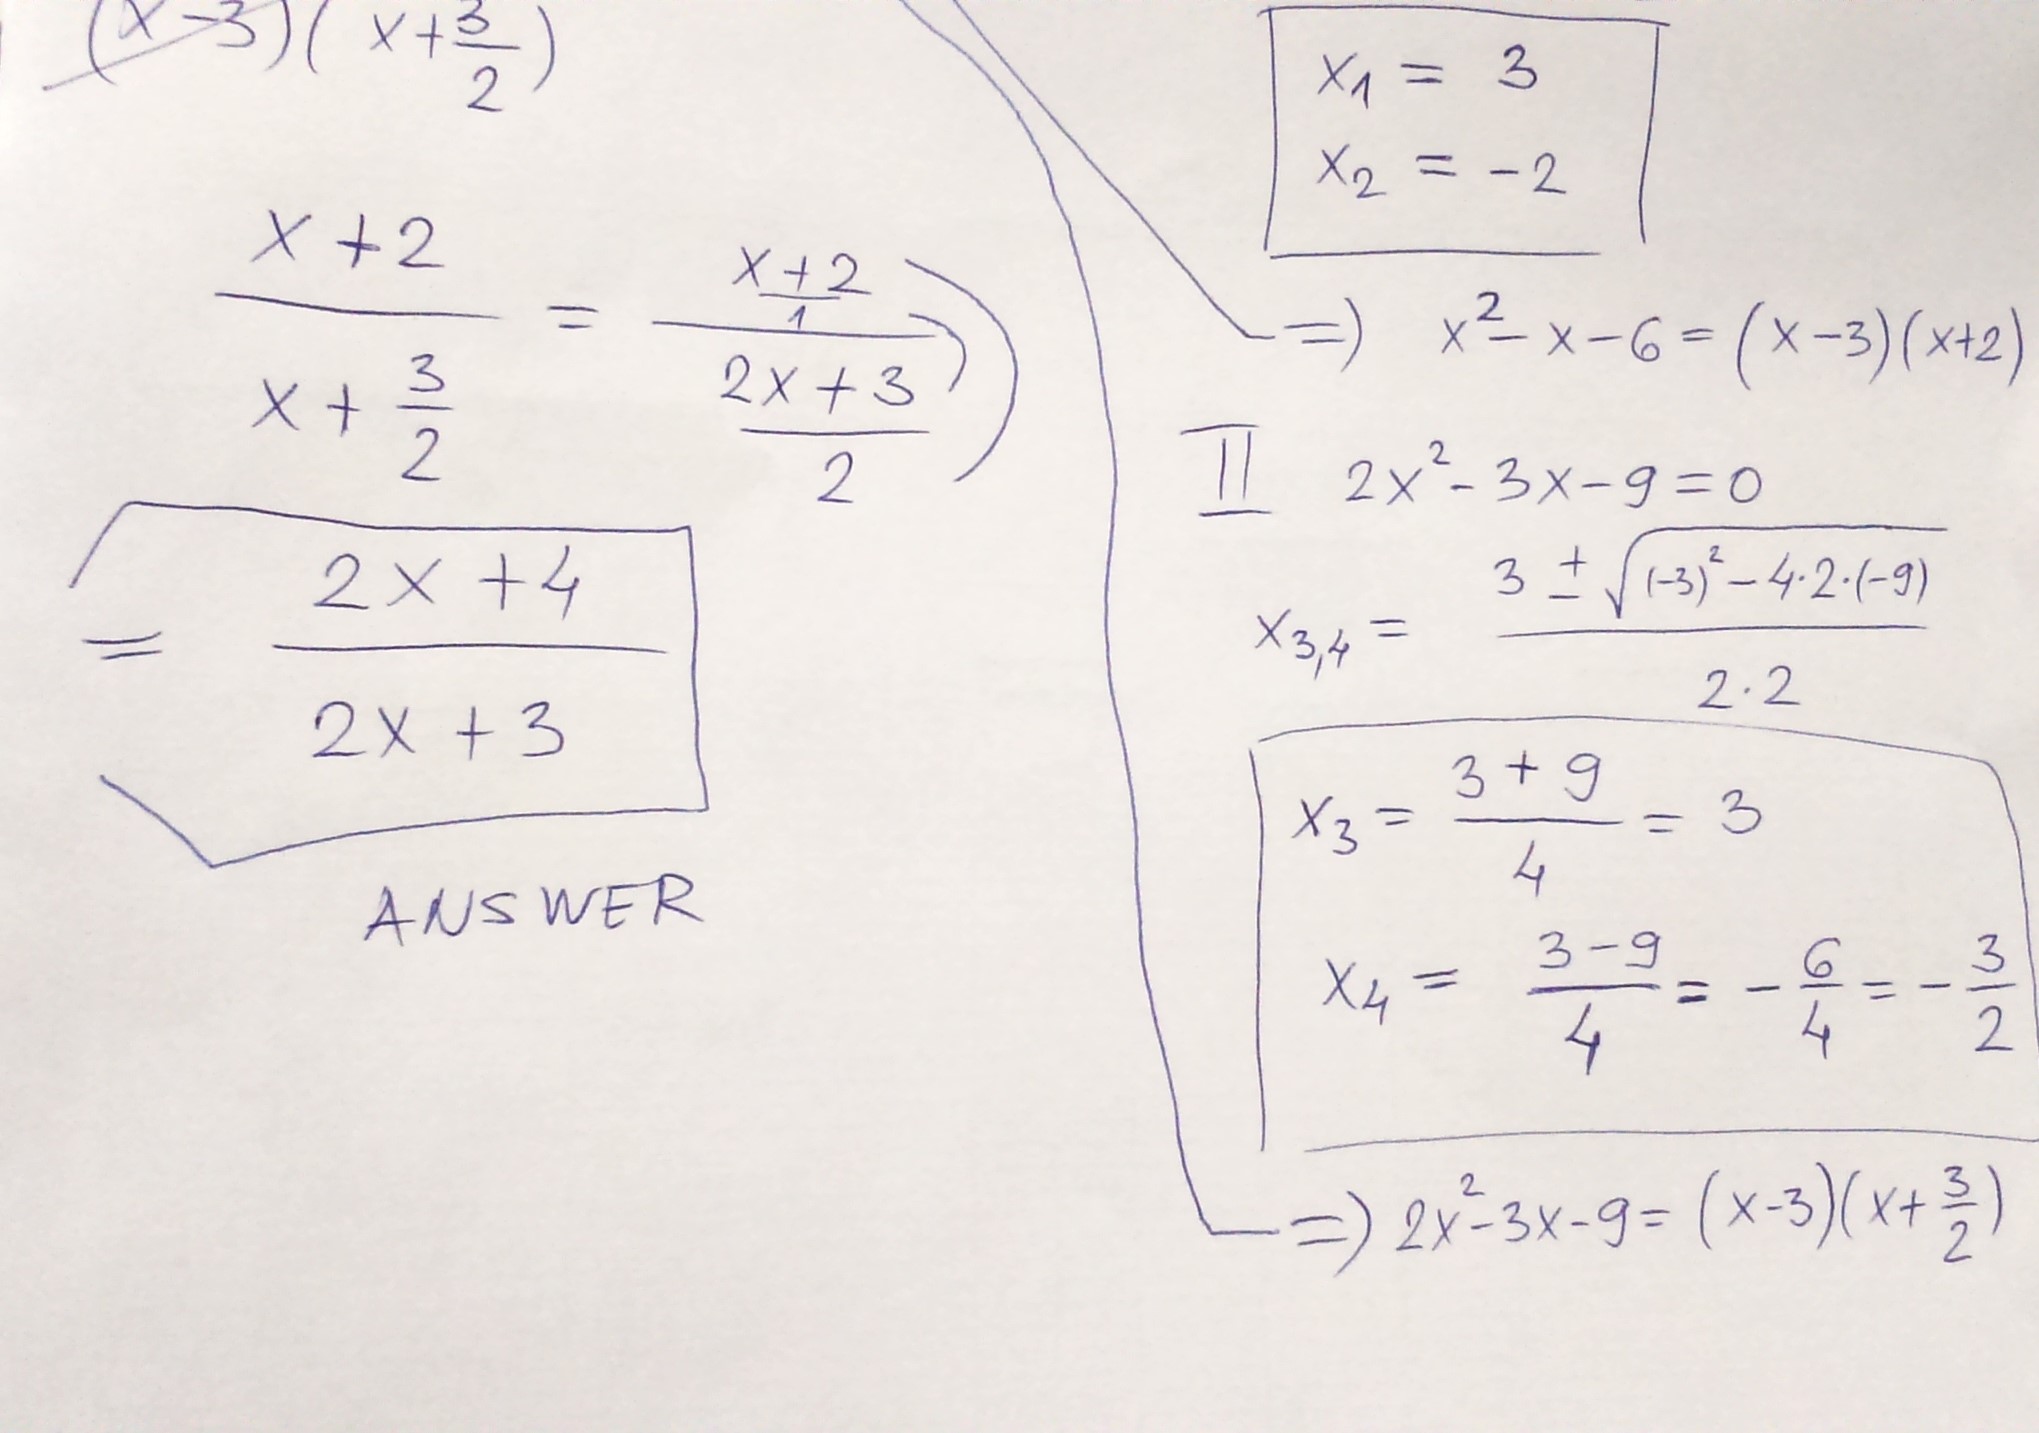 (x-3)(x+3/2)
(x+2)/(x+3/2) = ((x+2)/1)/((2x+3)/2)
= (2x+4)/(2x+3)
ANSWER
x₁ = 3
x₂ = -2
=) x²-x-6=(x-3)(x+2)
II 2x²-3x-9=0
x₃,₄ = (3±√((-3)²-4·2·(-9)))/(2·2)
x₃ = (3+9)/4 = 3
x₄ = (3-9)/4 = -6/4 = -3/2
=) 2x²-3x-9= (x-3)(x+3/2)